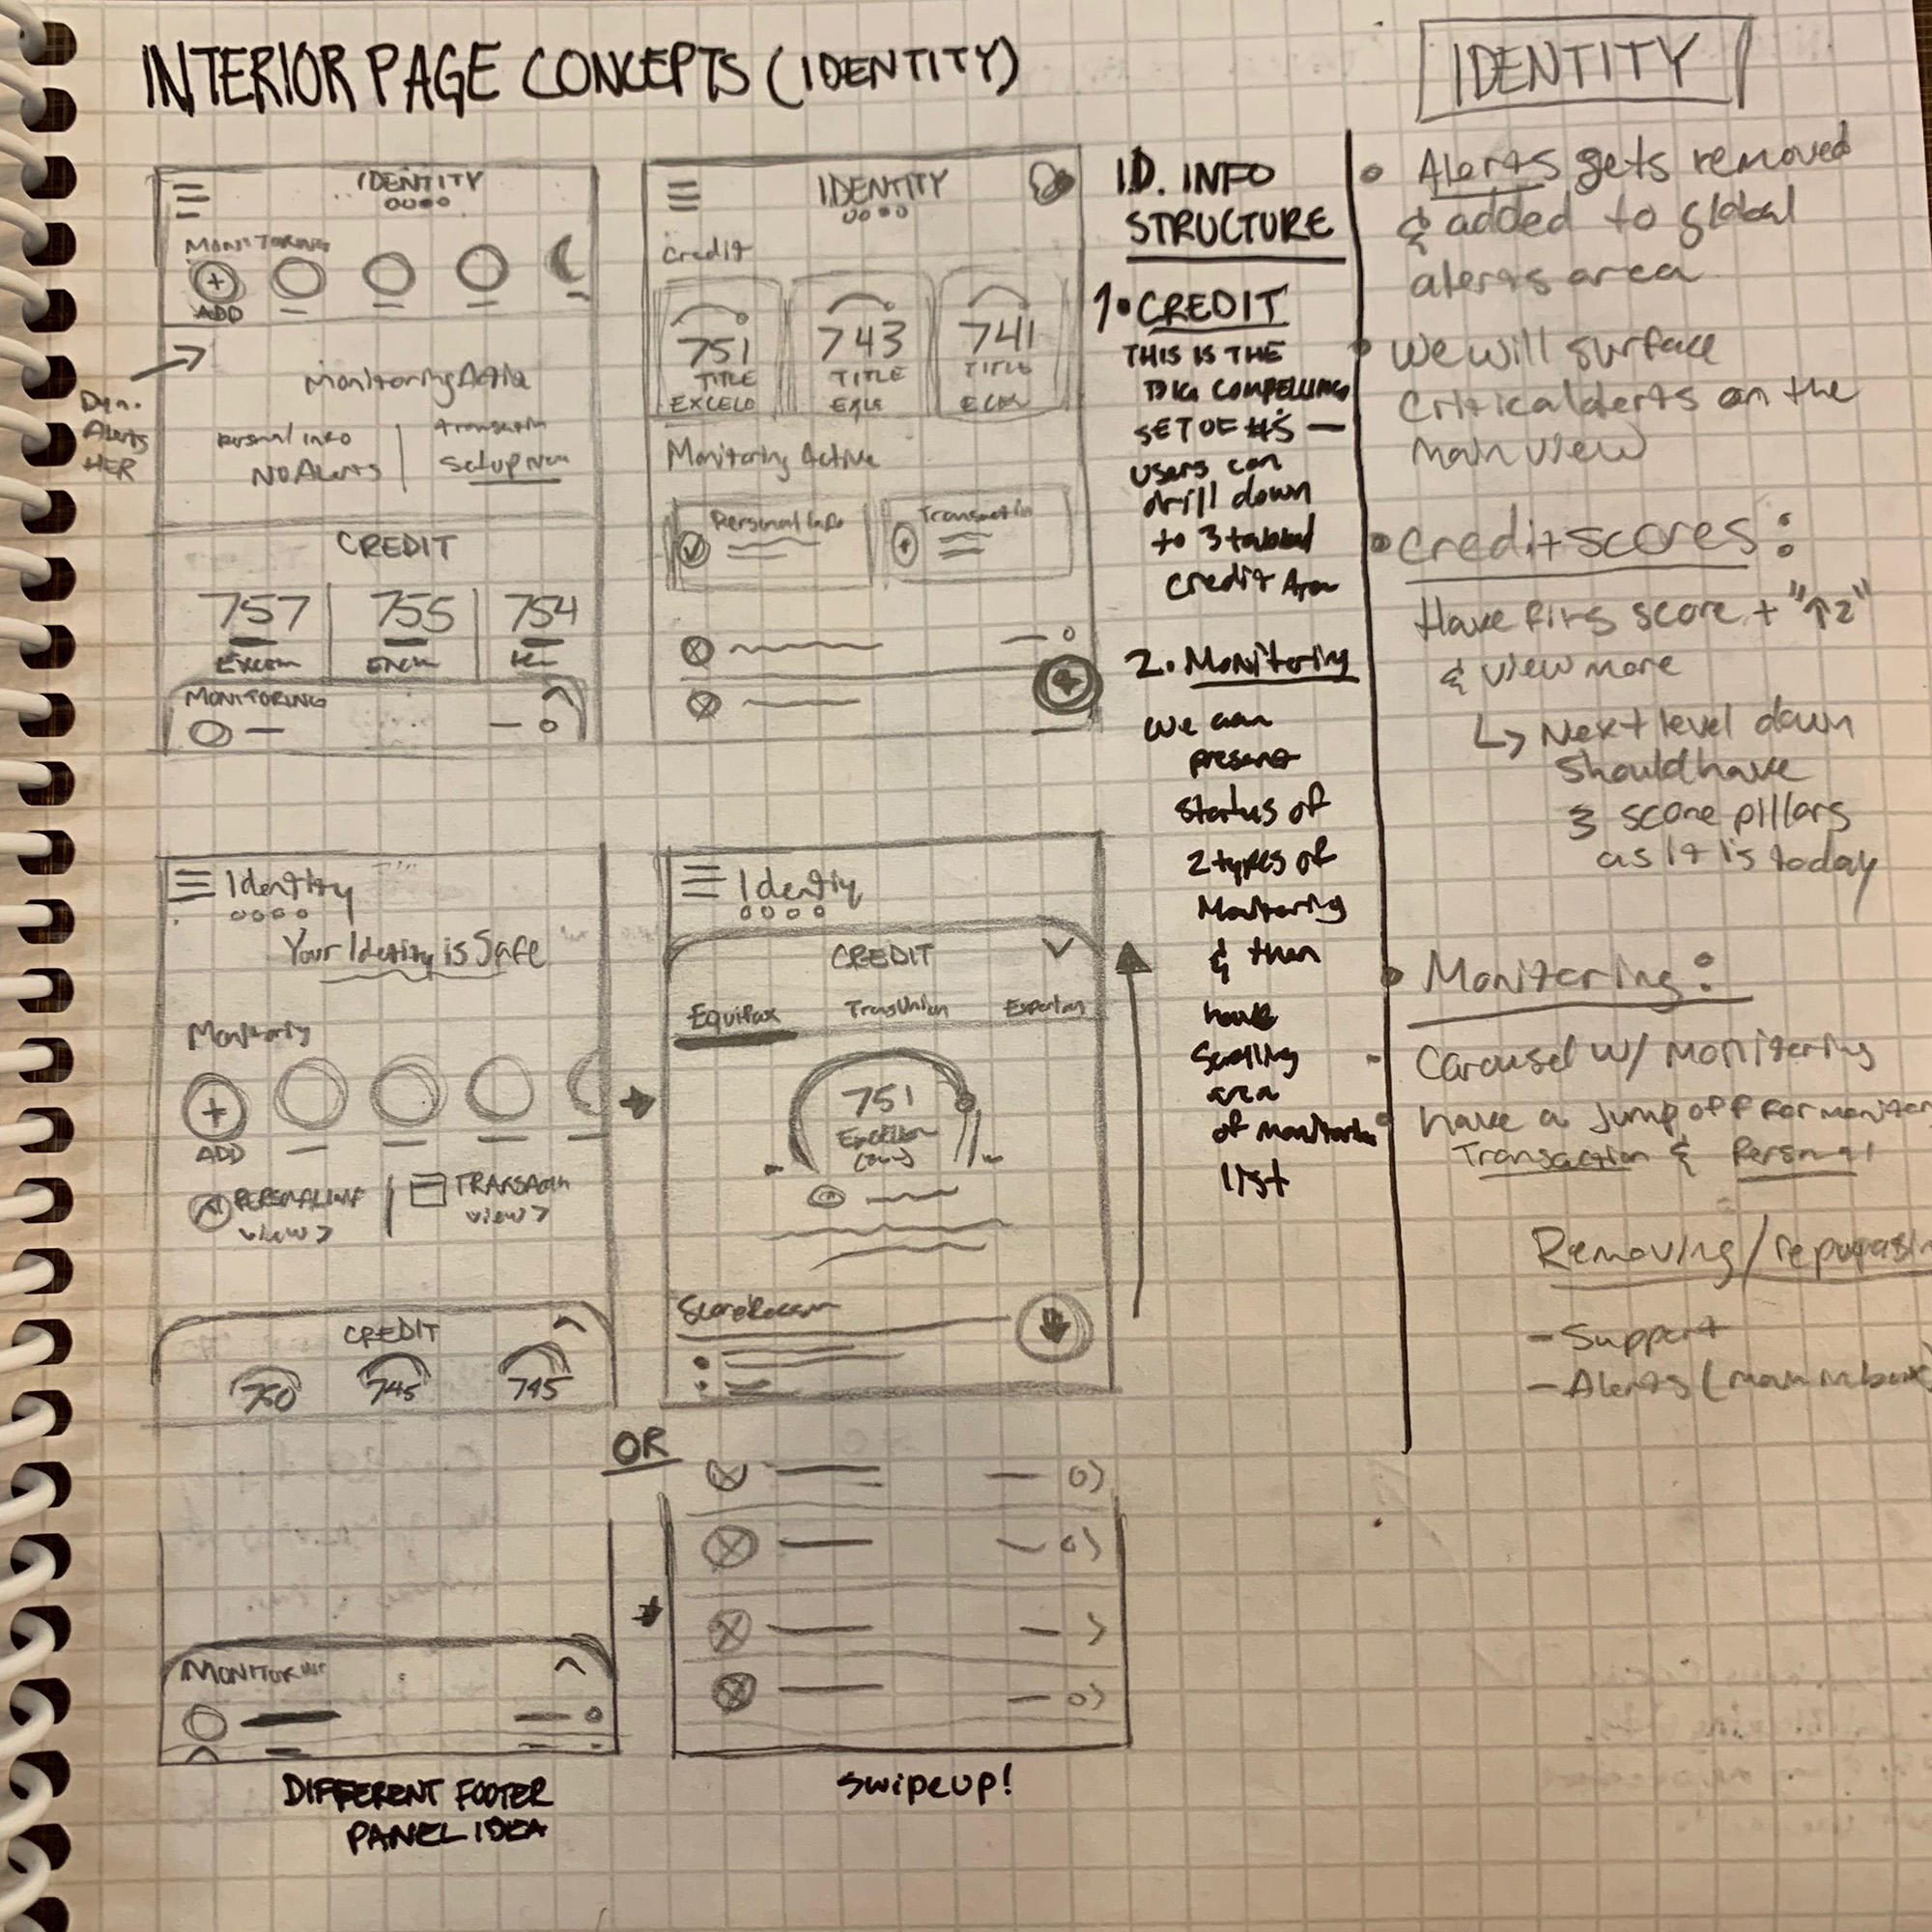 INTERIOR PAGE CONCEPTS (IDENTITY)
IDENTITY
MONITORING
ADD
Dyn.
Alerts
HER
Monitoring Active
personal info
NO Alerts
setup now
CREDIT
757
755
754
MONITORING
IDENTITY
Credit
751
743
741
TITLE
TITLE
TITLE
Monitoring Active
Personal Info
I.D. INFO
STRUCTURE
1. CREDIT
THIS IS THE
COMPELLING
SET OF #'S —
users can
drill down
to 3 tabbed
credit
2. Monitoring
we can
present
status of
2 types of
Monitoring
& then
have
scrolling
area
of monitoring
list
IDENTITY
Alerts gets removed
& added to global
alerts area
we will surface
critical alerts on the
main view
Credit scores:
Have score + "↑2"
& view more
↳ Next level down
should have
3 score pillars
as it is today
Monitoring:
Carousel w/ monitoring
have a jump off for
Transaction & Personal
Removing/
- Support
- Alerts (main
Identity
Your Identity is Safe
ADD
view >
view >
CREDIT
750
745
745
Identity
CREDIT
Equifax
TransUnion
751
OR
MONITOR
DIFFERENT FOOTER
PANEL IDEA
swipe up!